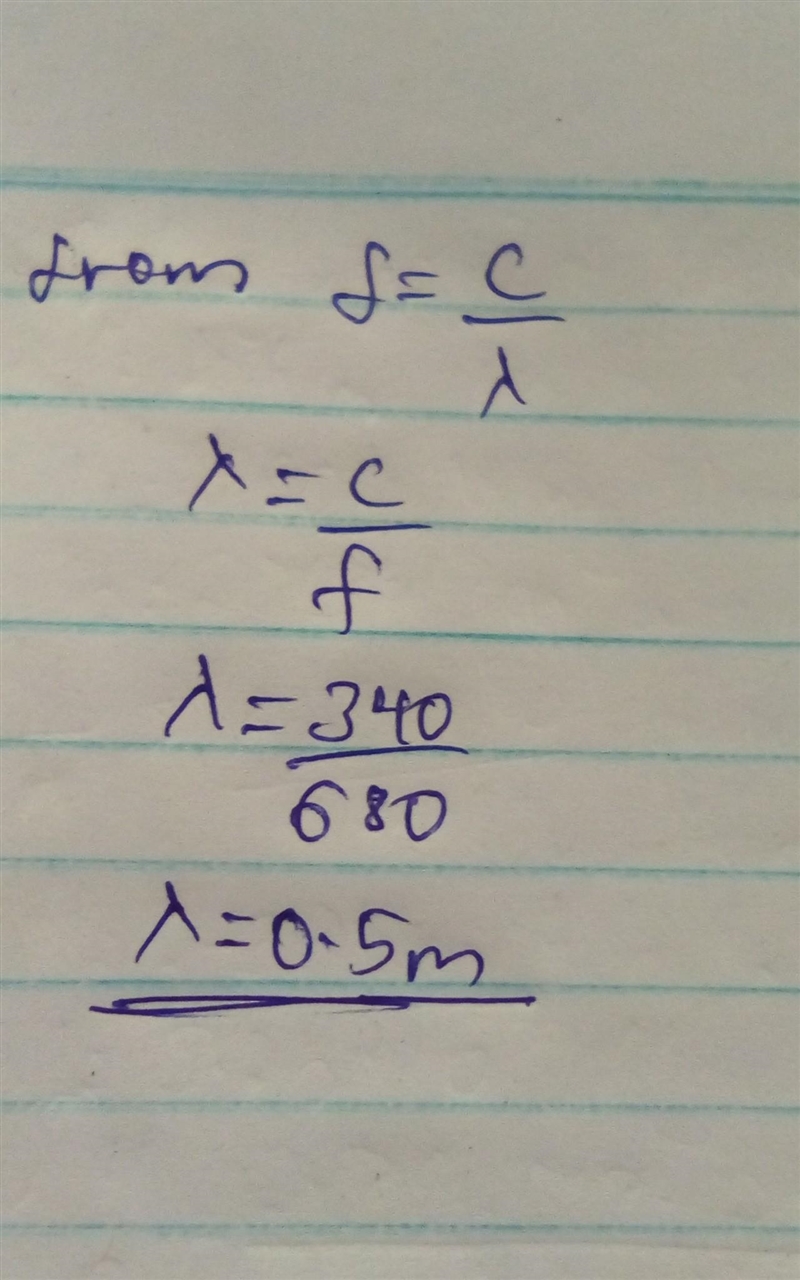 from f = c/λ
λ = c/f
λ = 340/680
λ = 0.5m